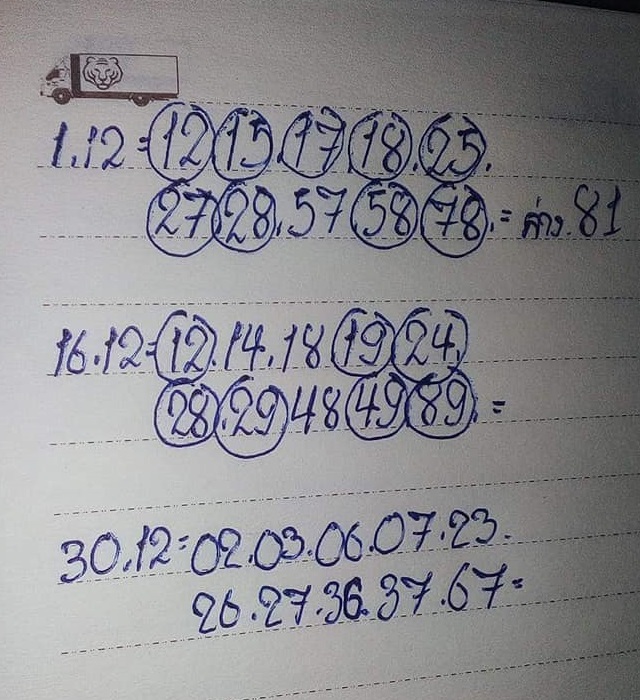 1.12=12.15.17.18.25.
27.28.57.58.78.=ล่าง.81
16.12=12.14.18.19.24.
28.29.48.49.89.=
30.12=02.03.06.07.23.
26.27.36.37.67=